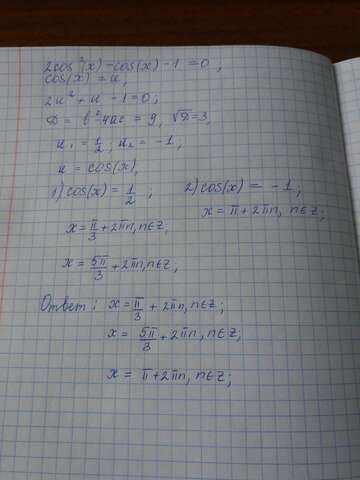 2cos²(x) - cos(x) - 1 = 0 ;
cos(x) = u,
2u² + u - 1 = 0 ;
D = b² - 4ac = 9, √D = 3,
u₁ = 1/2 ; u₂ = -1,
u = cos(x),
1) cos(x) = 1/2 ; 2) cos(x) = -1,
x = π + 2πn, n∈Z;
x = π/3 + 2πn, n∈Z,
x = 5π/3 + 2πn, n∈Z;
Ответ: x = π/3 + 2πn, n∈Z;
x = 5π/3 + 2πn, n∈Z;
x = π + 2πn, n∈Z;